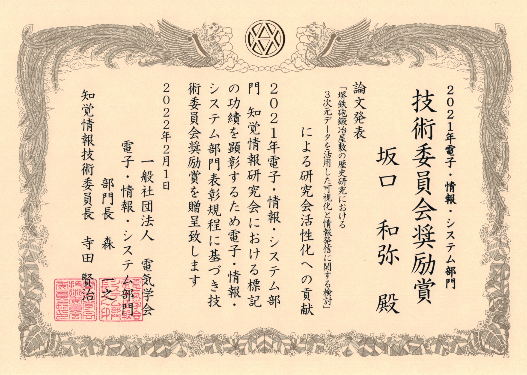 2021年電子・情報・システム部門
技術委員会奨励賞
坂口 和弥 殿
論文発表
「堺鉄砲鍛冶屋敷の歴史研究における
3次元データを活用した可視化と情報発信に関する検討」
による研究会活性化への貢献
2021年電子・情報・システム部
門 知覚情報研究会における標記
の功績を顕彰するため電子・情報・
システム部門表彰規程に基づき技
術委員会奨励賞を贈呈致します
2022年2月1日
一般社団法人 電気学会
電子・情報・システム部門
部門長 森 一之
知覚情報技術委員長 寺田 賢治